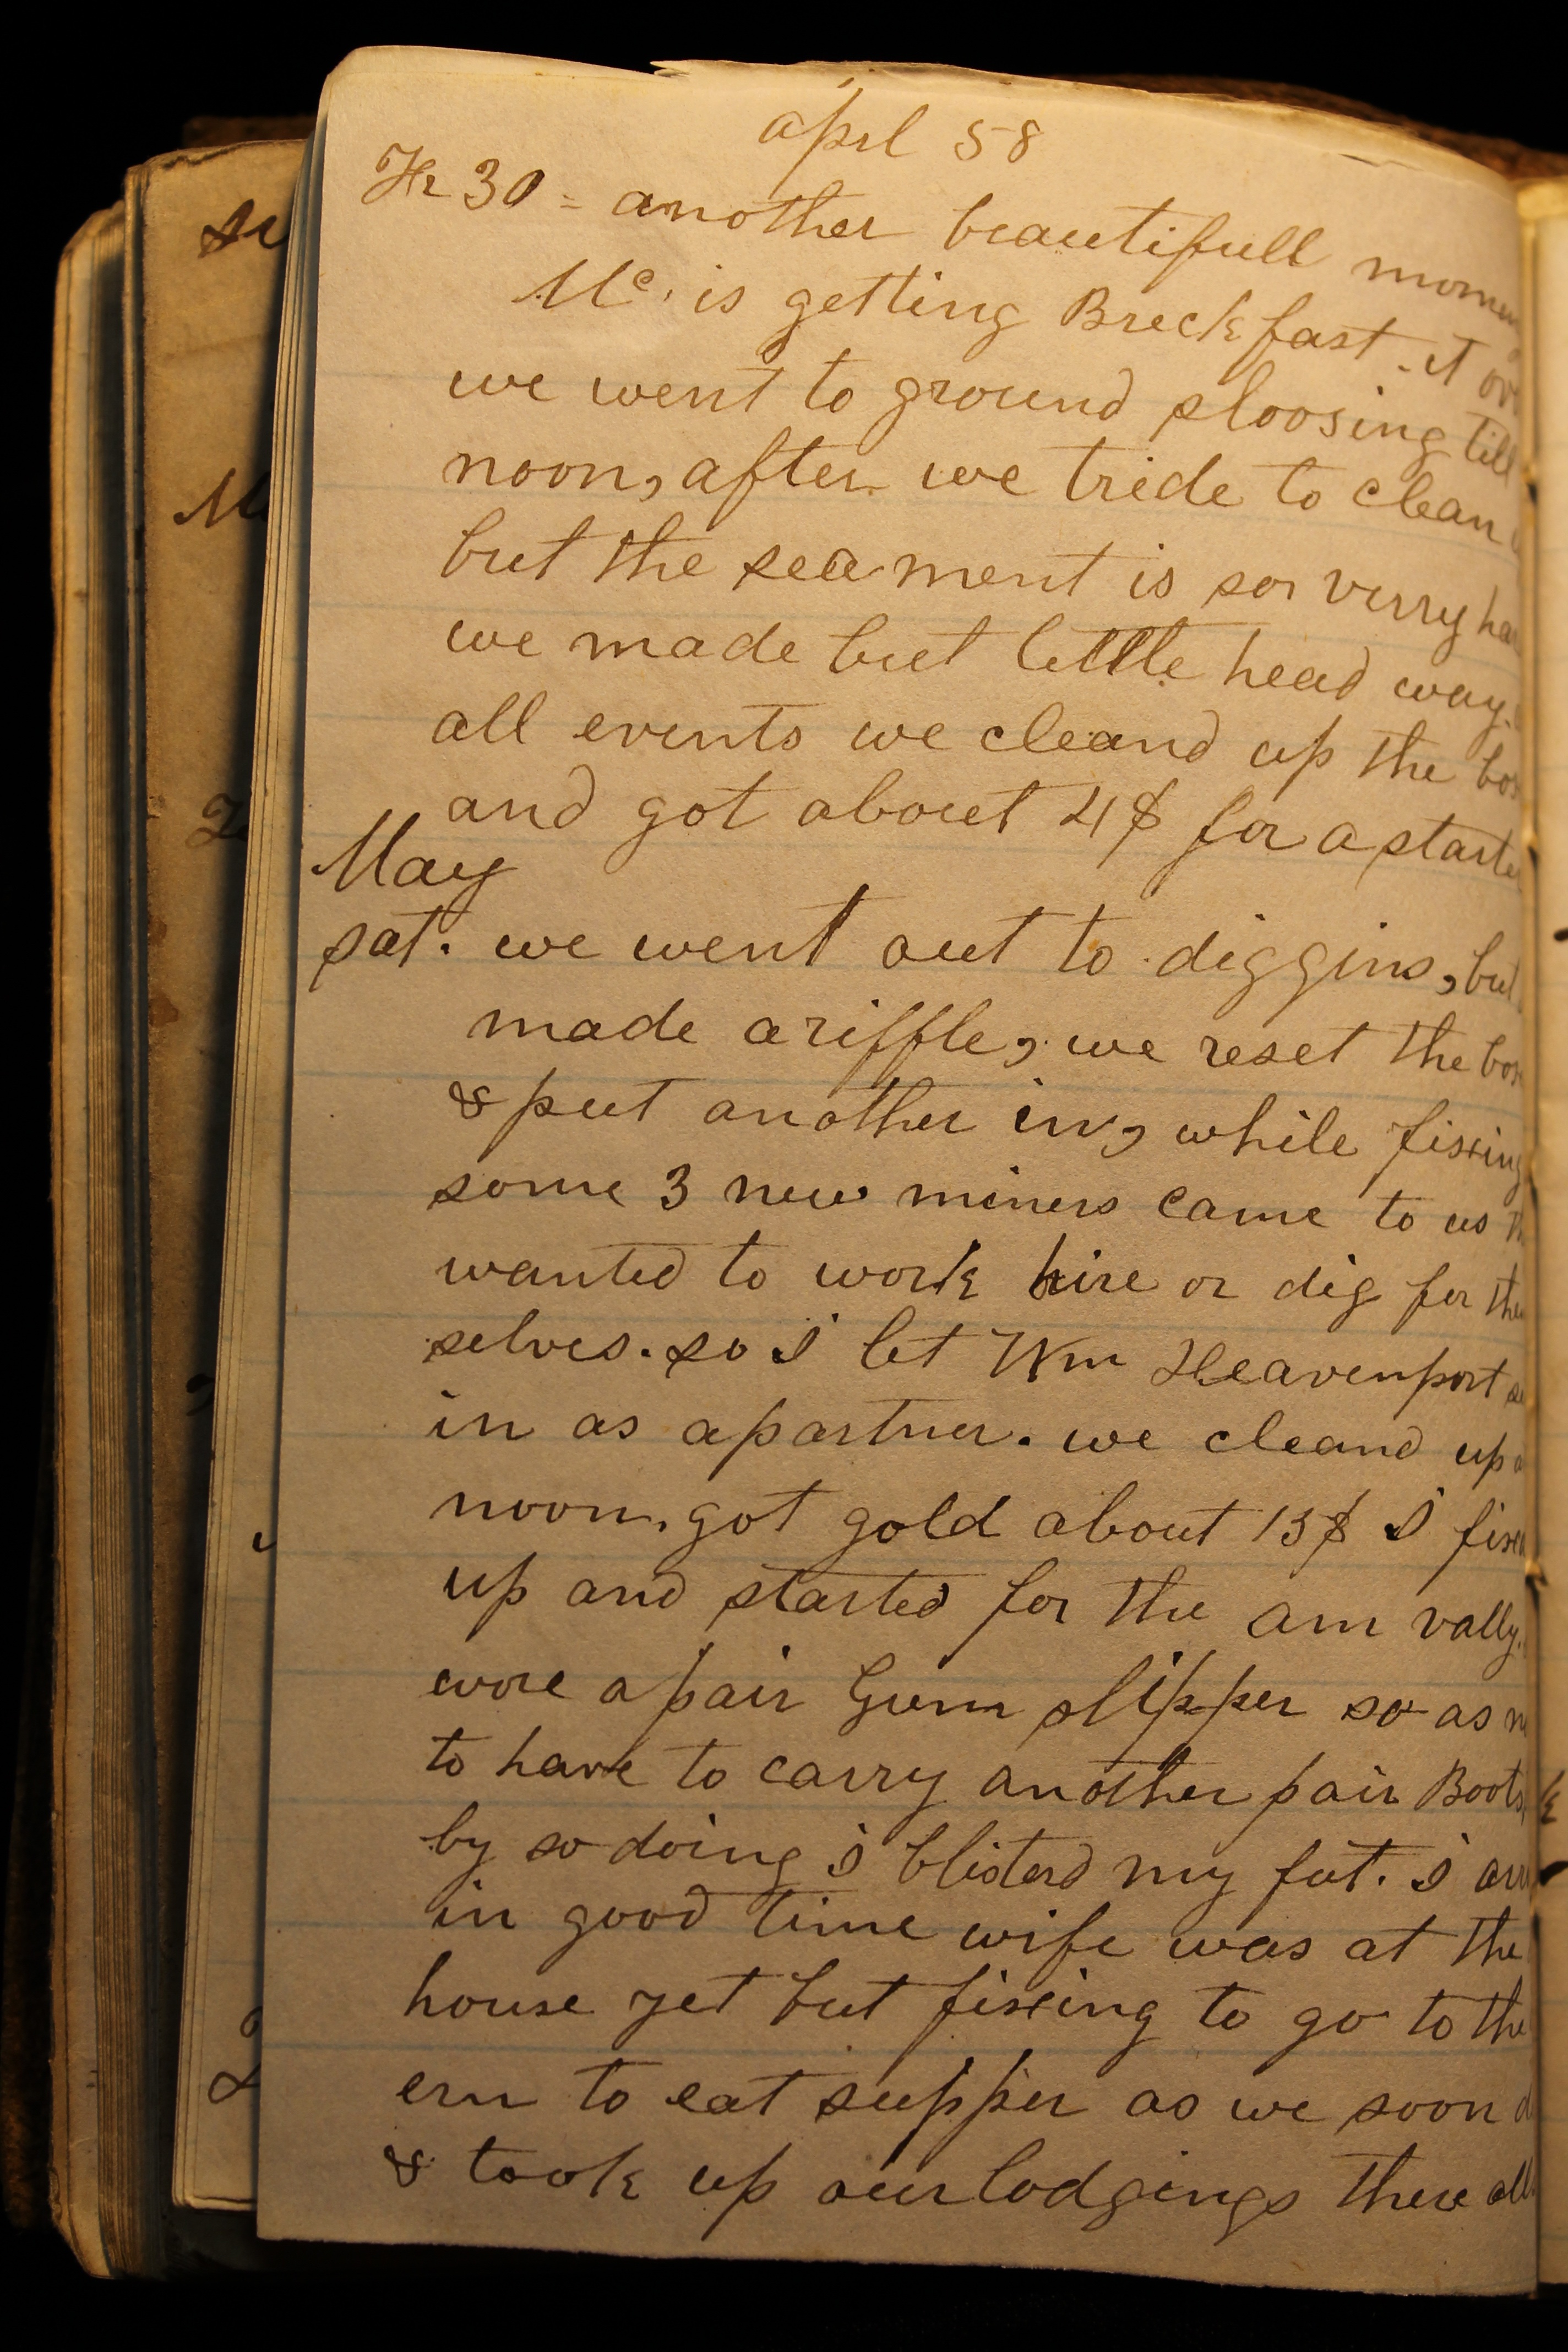 aprl 58
Fr 30 = another beautifull
Mc. is getting Breckfast. it
we went to ground sloosing till
noon, after we tride to clean
but the seament is sor verry
we made but little head way.
all events we cleand up the
and got about 4$ for a
May
sat. we went out to diggins, but
made a riffle, we reset the
& put another in, while fixing
some 3 new miners came to us
wanted to work hire or dig for
selves. so I let Wm Heavenport
in as a partner. we cleand up
noon. got gold about 13$ I
up and started for the am vally.
wore a pair Gum slipper so as
to have to carry another pair Boots
by so doing I blisterd my feet. I
in good time wife was at the
house yet but fixing to go to the
ern to eat supper as we soon
& took up our lodgings there